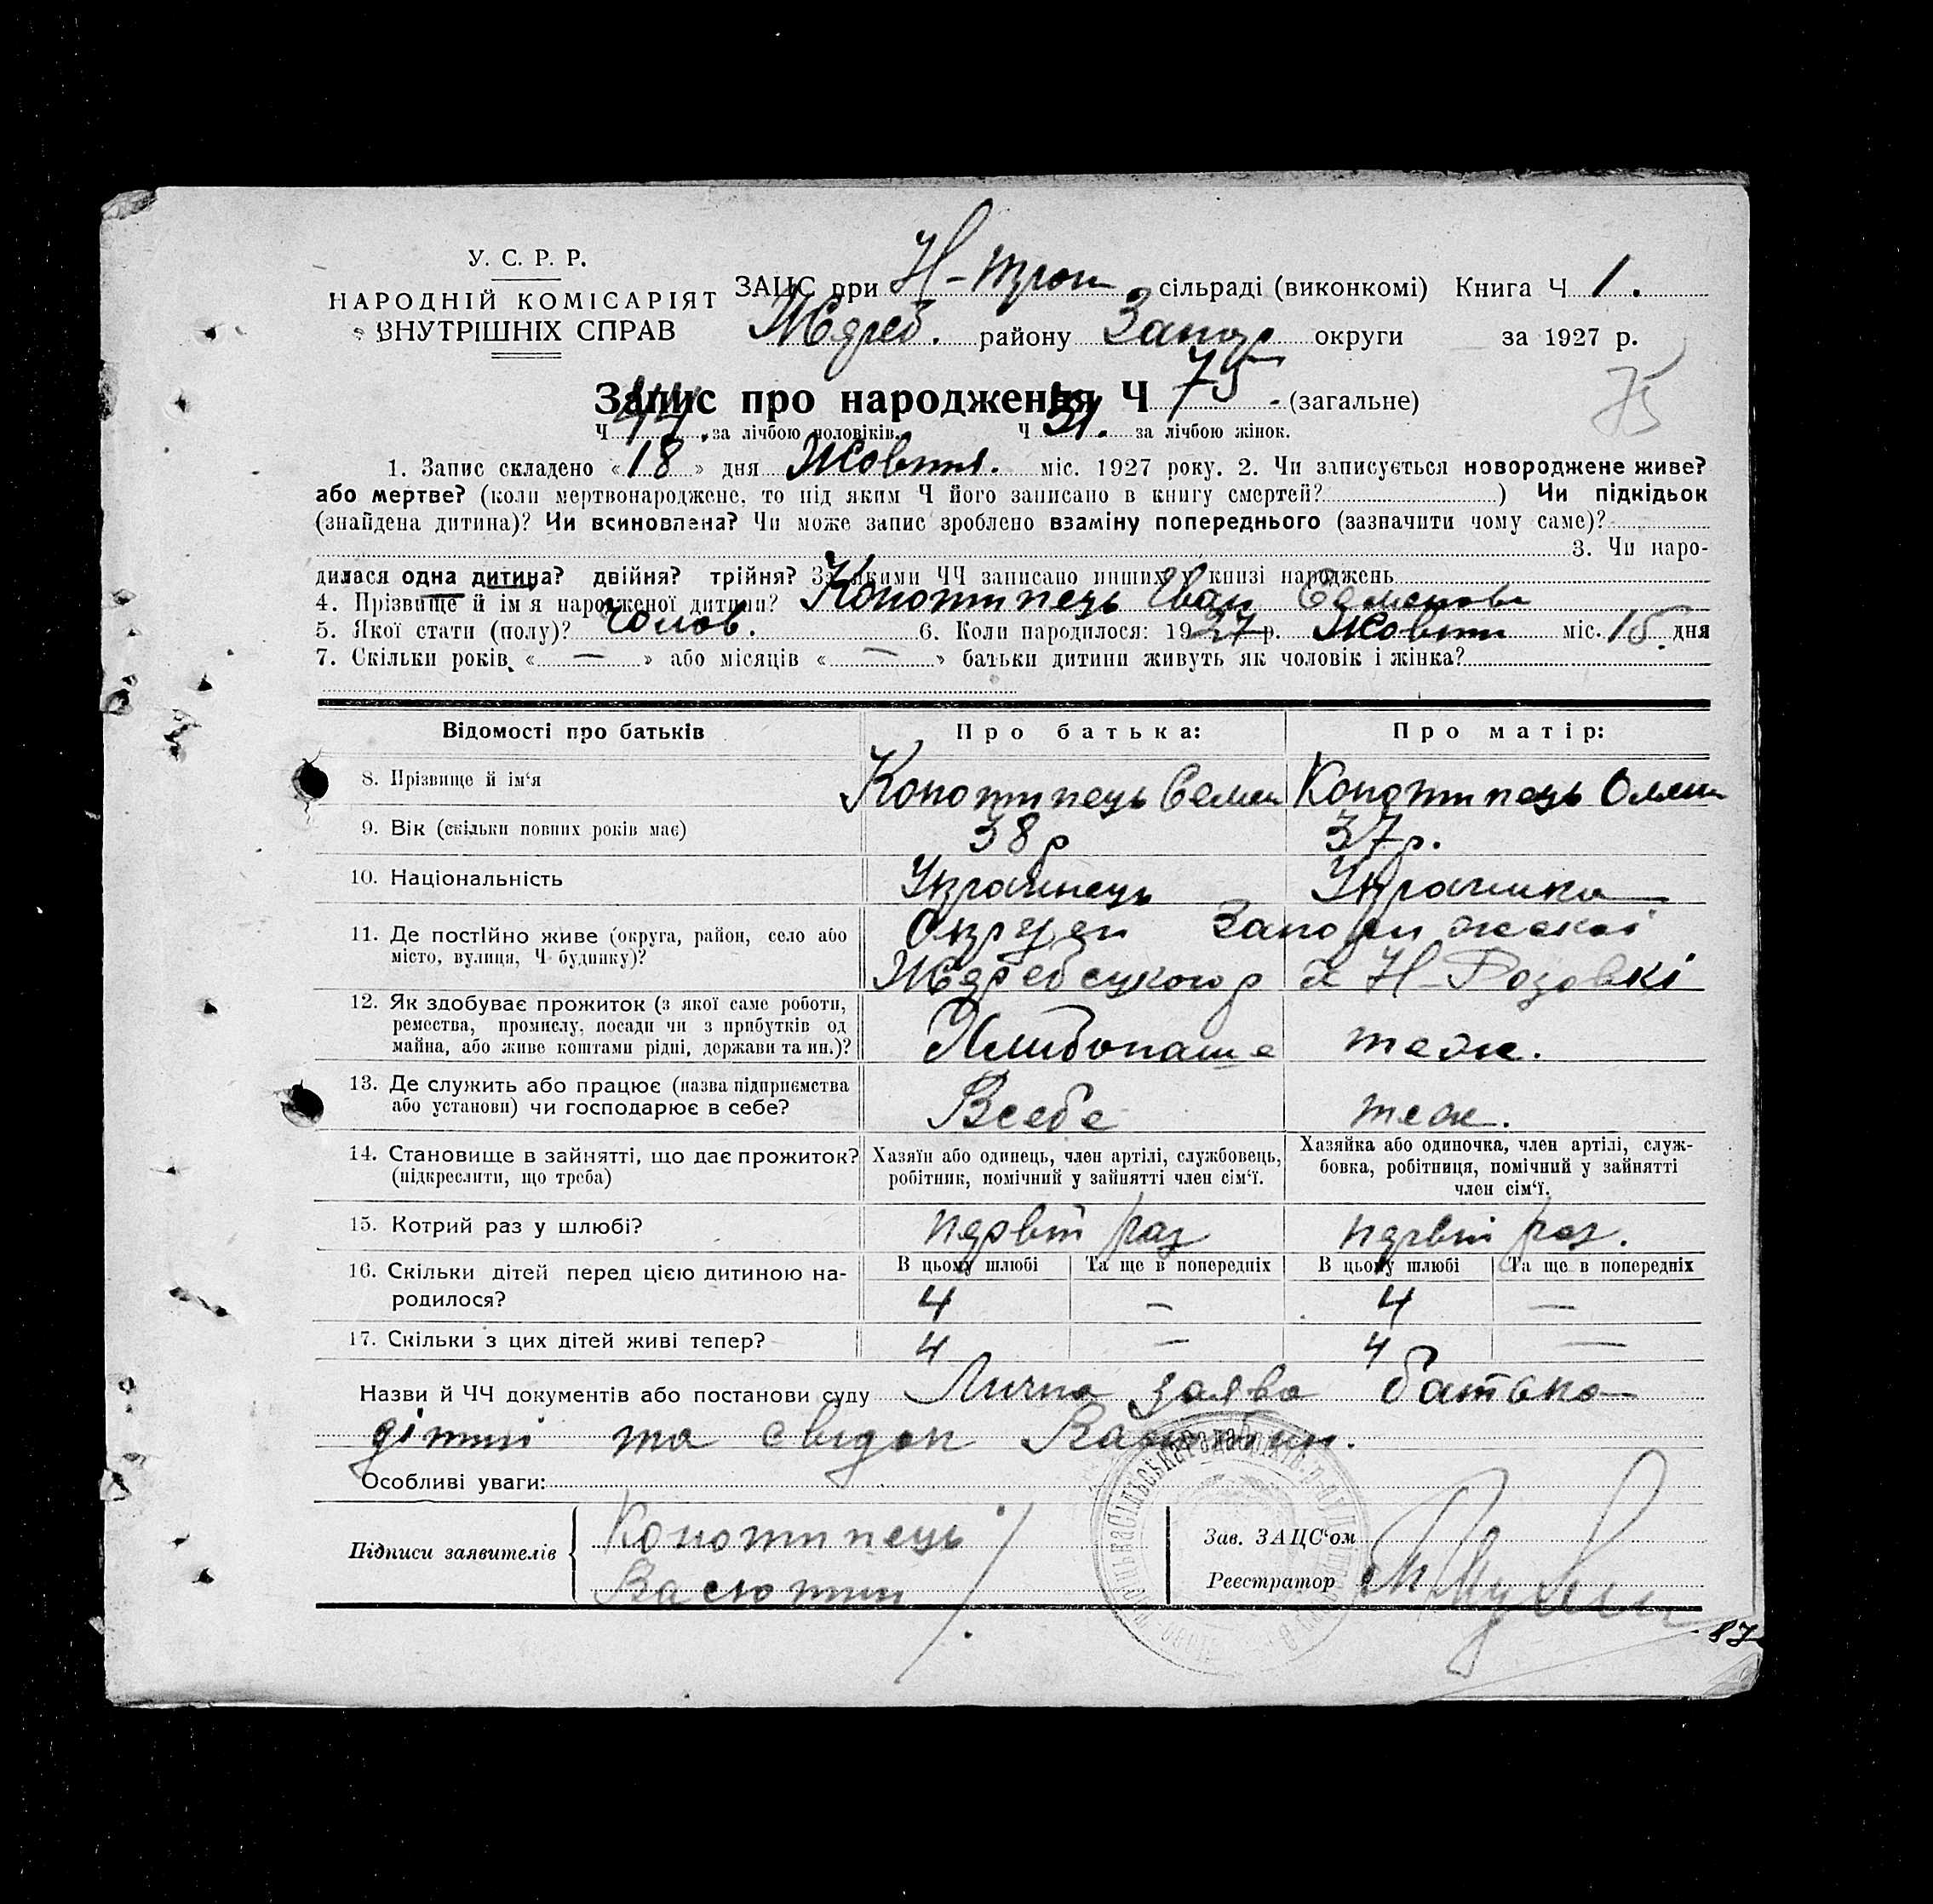 У. С. Р. Р.
НАРОДНІЙ КОМІСАРІЯТ
ВНУТРІШНІХ СПРАВ
ЗАЦС при Н-Трои сільраді (виконкомі) Книга Ч 1.
Жереб. району Запор округи за 1927 р.
Запис про народження Ч 75 (загальне)
75
Ч 44. за лічбою чоловіків. Ч 31. за лічбою жінок.
1. Запис складено « 18 » дня Жовтня. міс. 1927 року. 2. Чи записується новороджене живе?
або мертве? (коли мертвонароджене, то під яким Ч його записано в книгу смертей? ) Чи підкідьок
(знайдена дитина)? Чи всиновлена? Чи може запис зроблено взаміну попереднього (зазначити чому саме)?
3. Чи наро-
дилася одна дитина? двійня? трійня? За якими ЧЧ записано инших у книзі народжень
4. Прізвище й ім'я народженої дитини? Конотипець Іван Семенов
5. Якої стати (полу)? Чолов. 6. Коли народилося: 1927 р. Жовтн міс. 15 дня
7. Скільки років « — » або місяців « — » батьки дитини живуть як чоловік і жінка?
Відомості про батьків Про батька: Про матір:
8. Прізвище й ім'я Конотипець Семен Конотипець Олена
9. Вік (скільки повних років має) 38 р 37 р.
10. Національність Українець Українка
11. Де постійно живе (округа, район, село або Округи Запоріжскої
місто, вулиця, Ч будинку)? Жеребецкого р Н-Розовкі
12. Як здобуває прожиток (з якої саме роботи,
ремества, промислу, посади чи з прибутків од
майна, або живе коштами рідні, держави та ин.)? Хлибопаше теж.
13. Де служить або працює (назва підприємства
або установи) чи господарює в себе? Всебе теж.
14. Становище в зайнятті, що дає прожиток? Хазяїн або одинець, член артілі, службовець, Хазяйка або одиночка, член артілі, служ-
(підкреслити, що треба) робітник, помічний у зайнятті член сім'ї. бовка, робітниця, помічний у зайнятті
член сім'ї.
15. Котрий раз у шлюбі? первий раз первий раз.
16. Скільки дітей перед цією дитиною на- В цьому шлюбі Та ще в попередніх В цьому шлюбі Та ще в попередніх
родилося? 4 — 4 —
17. Скільки з цих дітей живі тепер? 4 — 4 —
Назви й ЧЧ документів або постанови суду Лична заява батька
та свидок
Особливі уваги:
Підписи заявителів Конотипець
Васютин
Зав. ЗАЦС'ом
Реєстратор
87